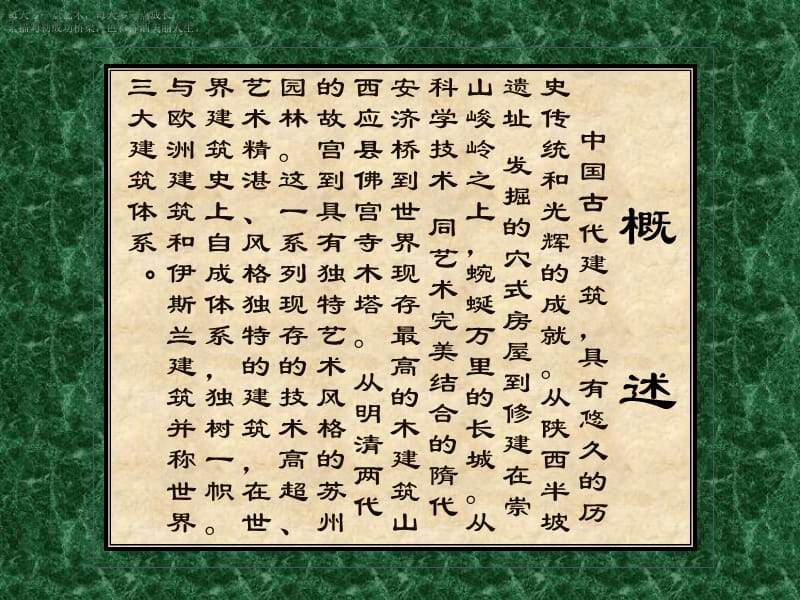 概 述
中国古代建筑,具有悠久的历
史传统和光辉的成就。从陕西半坡
遗址 发掘的穴式房屋到修建在崇
山峻岭之上,蜿蜒万里的长城。从
科学技术 同艺术完美结合的隋代
安济桥到世界现存最高的木建筑山
西应县佛宫寺木塔。 从明清两代
的故宫到具有独特艺术风格的苏州
园林。这一系列现存的技术高超、
艺术精湛、风格独特的建筑,在世
界建筑史上自成体系,独树一帜。
与欧洲建筑和伊斯兰建筑并称世界
三大建筑体系。